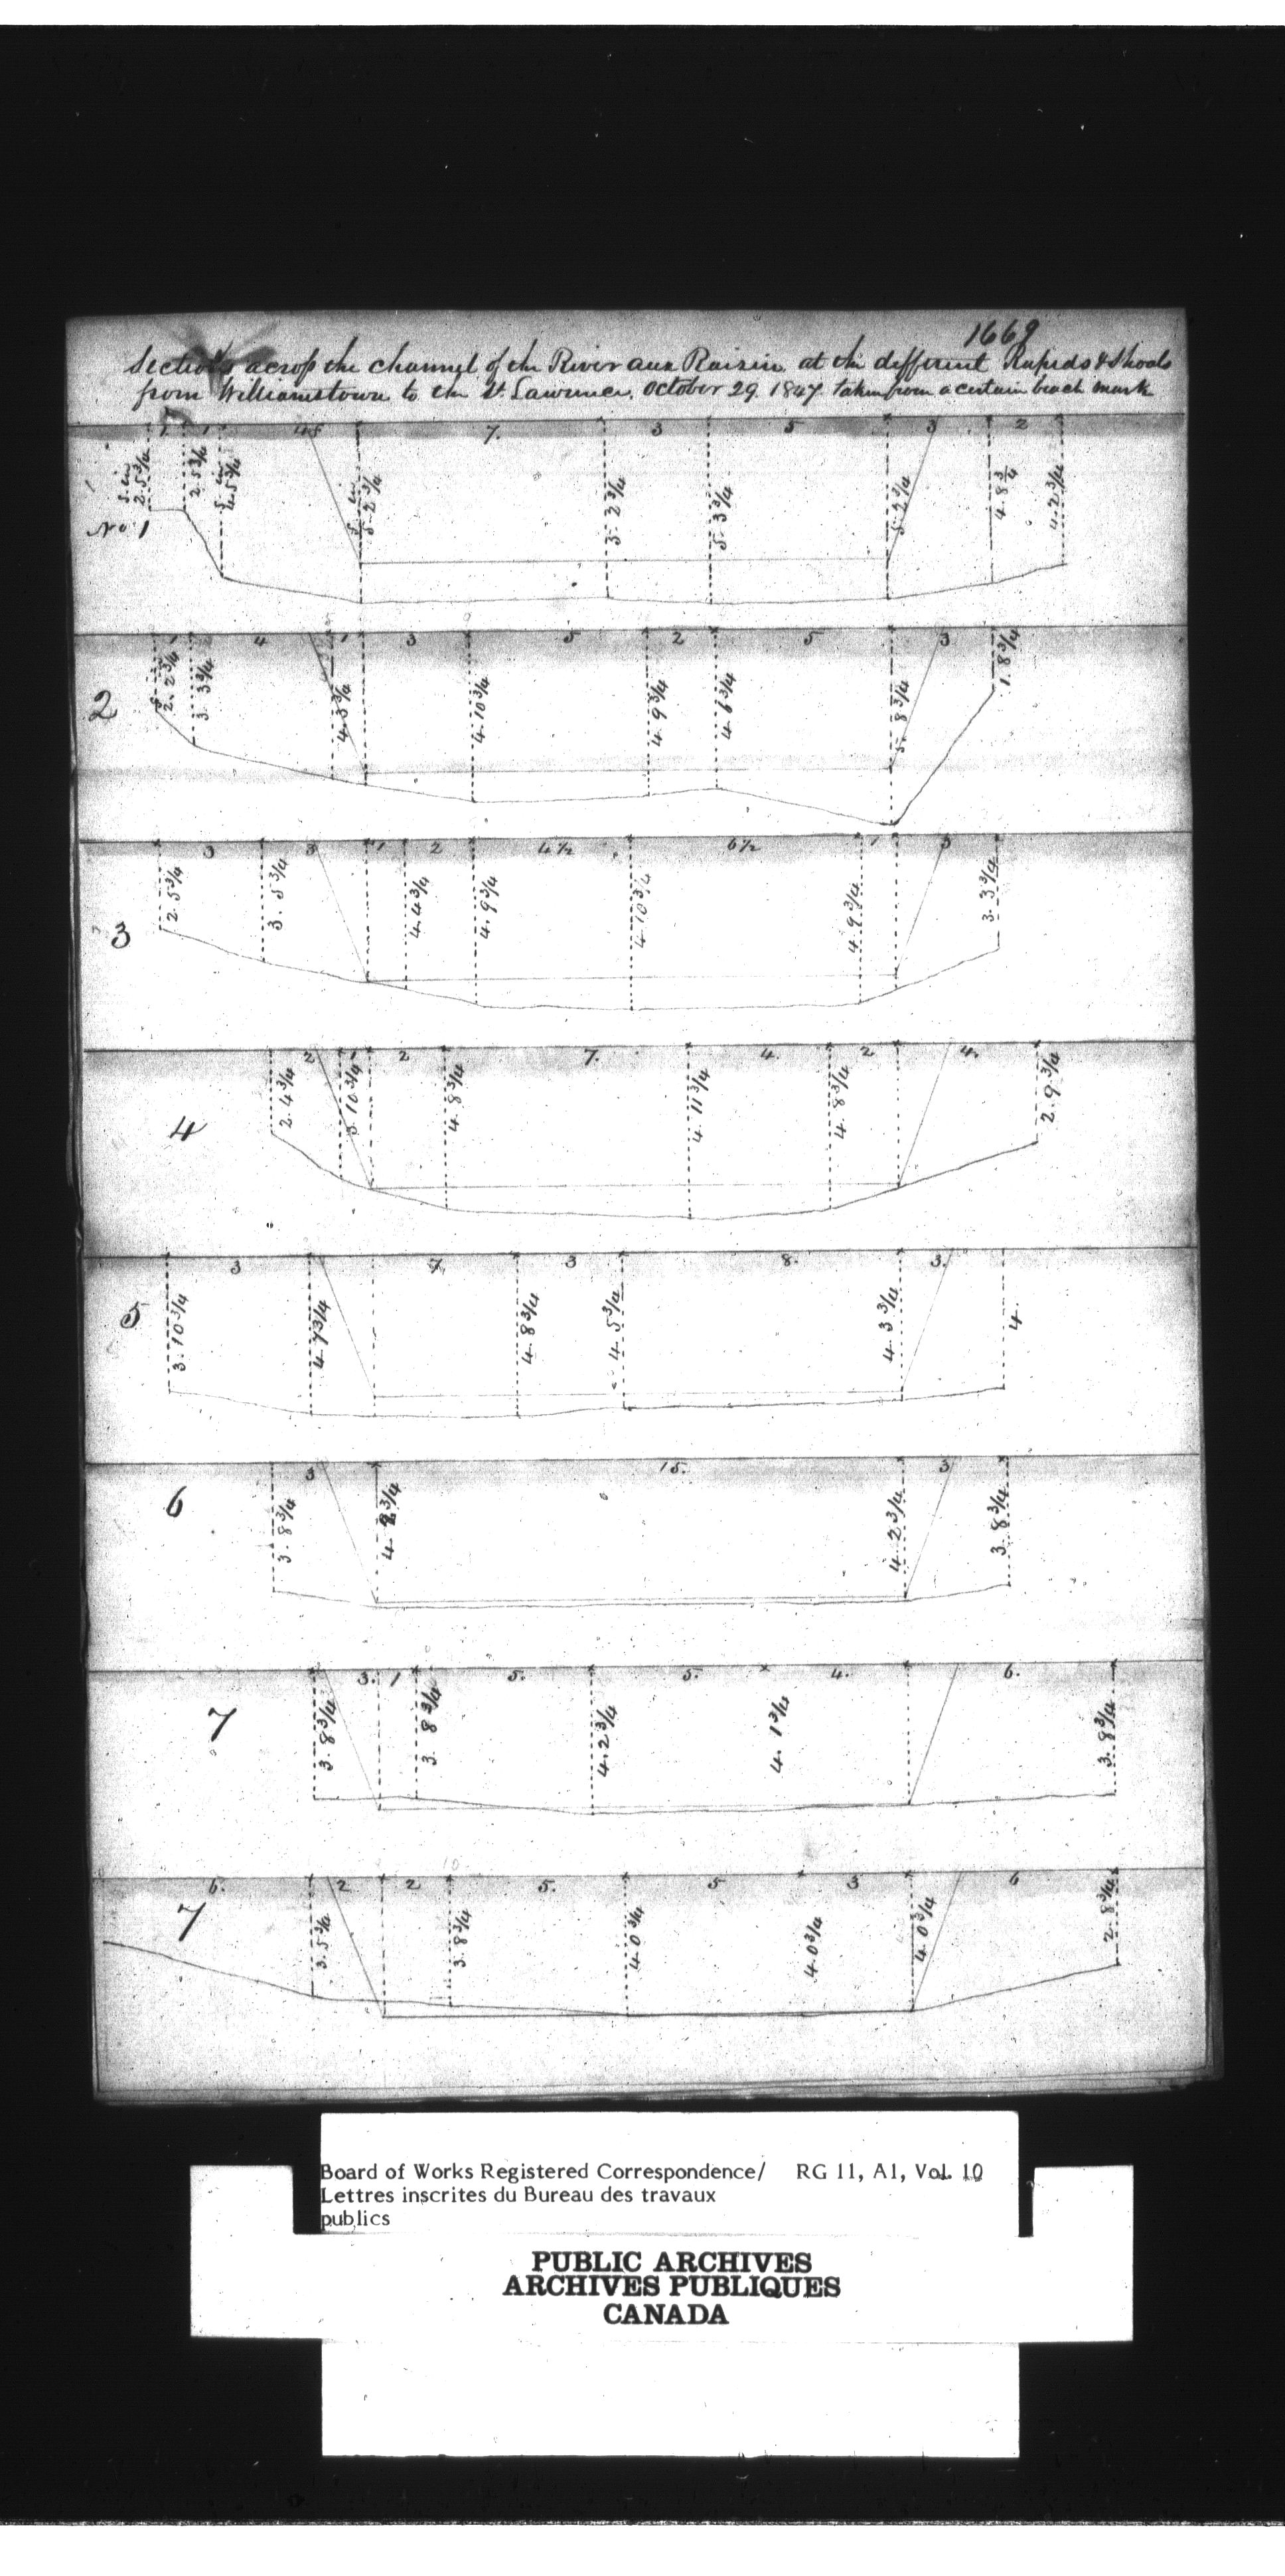 1669
Sections across the channel of the River aux Raisin at the different Rapids & Shoals
from Williamstown to the St. Lawrence, October 29. 1847. Taken from a certain bench mark
1 1 4 7. 3 5 3 2
2.5¾ 2 5¾ 4.5¾ 5 2¾ 5. 2¾ 5. 3¾ 5. 2¾ 4. 8¾ 4. 2¾
No. 1
1 4 1 3 5 2 5 3
2. 2¾ 3. 3¾ 4. 3¾ 4. 10¾ 4. 9¾ 4. 6¾ 5. 8¾ 1. 8¾
2
3 3 1 2 4½ 6½ 1 3
2. 5¾ 3. 5¾ 4. 4¾ 4. 9¾ 4. 10¾ 4. 9¾ 3. 3¾
3
2 1 2 7. 4. 2 4.
2. 4¾ 3. 10¾ 4. 8¾ 4. 11¾ 4. 8¾ 2. 9¾
4
3 7 3 8. 3.
3. 10¾ 4. 7¾ 4. 8¾ 4. 5¾ 4. 3¾ 4.
5
3 15. 3
3. 8¾ 4. 2¾ 4. 2¾ 3. 8¾
6
3. 1 5. 5. 4. 6.
3. 8¾ 3. 8¾ 4. 2¾ 4. 1¾ 3. 8¾
7
6. 2 2 5. 5 3 6
3. 5¾ 3. 8¾ 4. 0¾ 4. 0¾ 4. 0¾ 2. 8¾
7
Board of Works Registered Correspondence/ RG 11, A1, Vol. 10
Lettres inscrites du Bureau des travaux
publics
PUBLIC ARCHIVES
ARCHIVES PUBLIQUES
CANADA